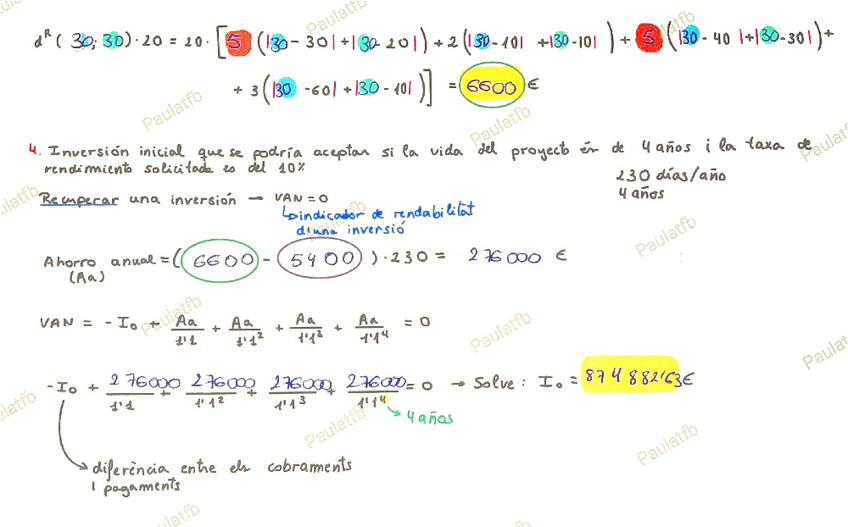 dᴿ(30; 30)·20 = 20·[5(|30-30|+|30-20|)+2(|30-10| +|30-10|)+5(|30-40|+|30-30|)+
+ 3(|30-60|+|30-10|)] = 6600 €
4. Inversión inicial que se podría aceptar si la vida del proyecto és de 4 años i la taxa de
rendimiento solicitada es del 10%
230 días/año
4 años
Recuperar una inversión → VAN = 0
↳ indicador de rendabilitat
d'una inversió
Ahorro anual = (6600 - 5400)·230 = 276000 €
(Aa)
VAN = -I₀ + Aa/1'1 + Aa/1'1² + Aa/1'1² + Aa/1'1⁴ = 0
-I₀ + 276000/1'1 + 276000/1'1² + 276000/1'1³ + 276000/1'1⁴ = 0 → Solve: I₀ = 874882'63€
→ 4 años
diferència entre els cobraments
i pagaments
Paulatfb
Paulatfb
Paulatfb
Paulatfb
Paulatfb
Paulatfb
Paulatfb
Paulatfb
Paulatfb
Paulatfb